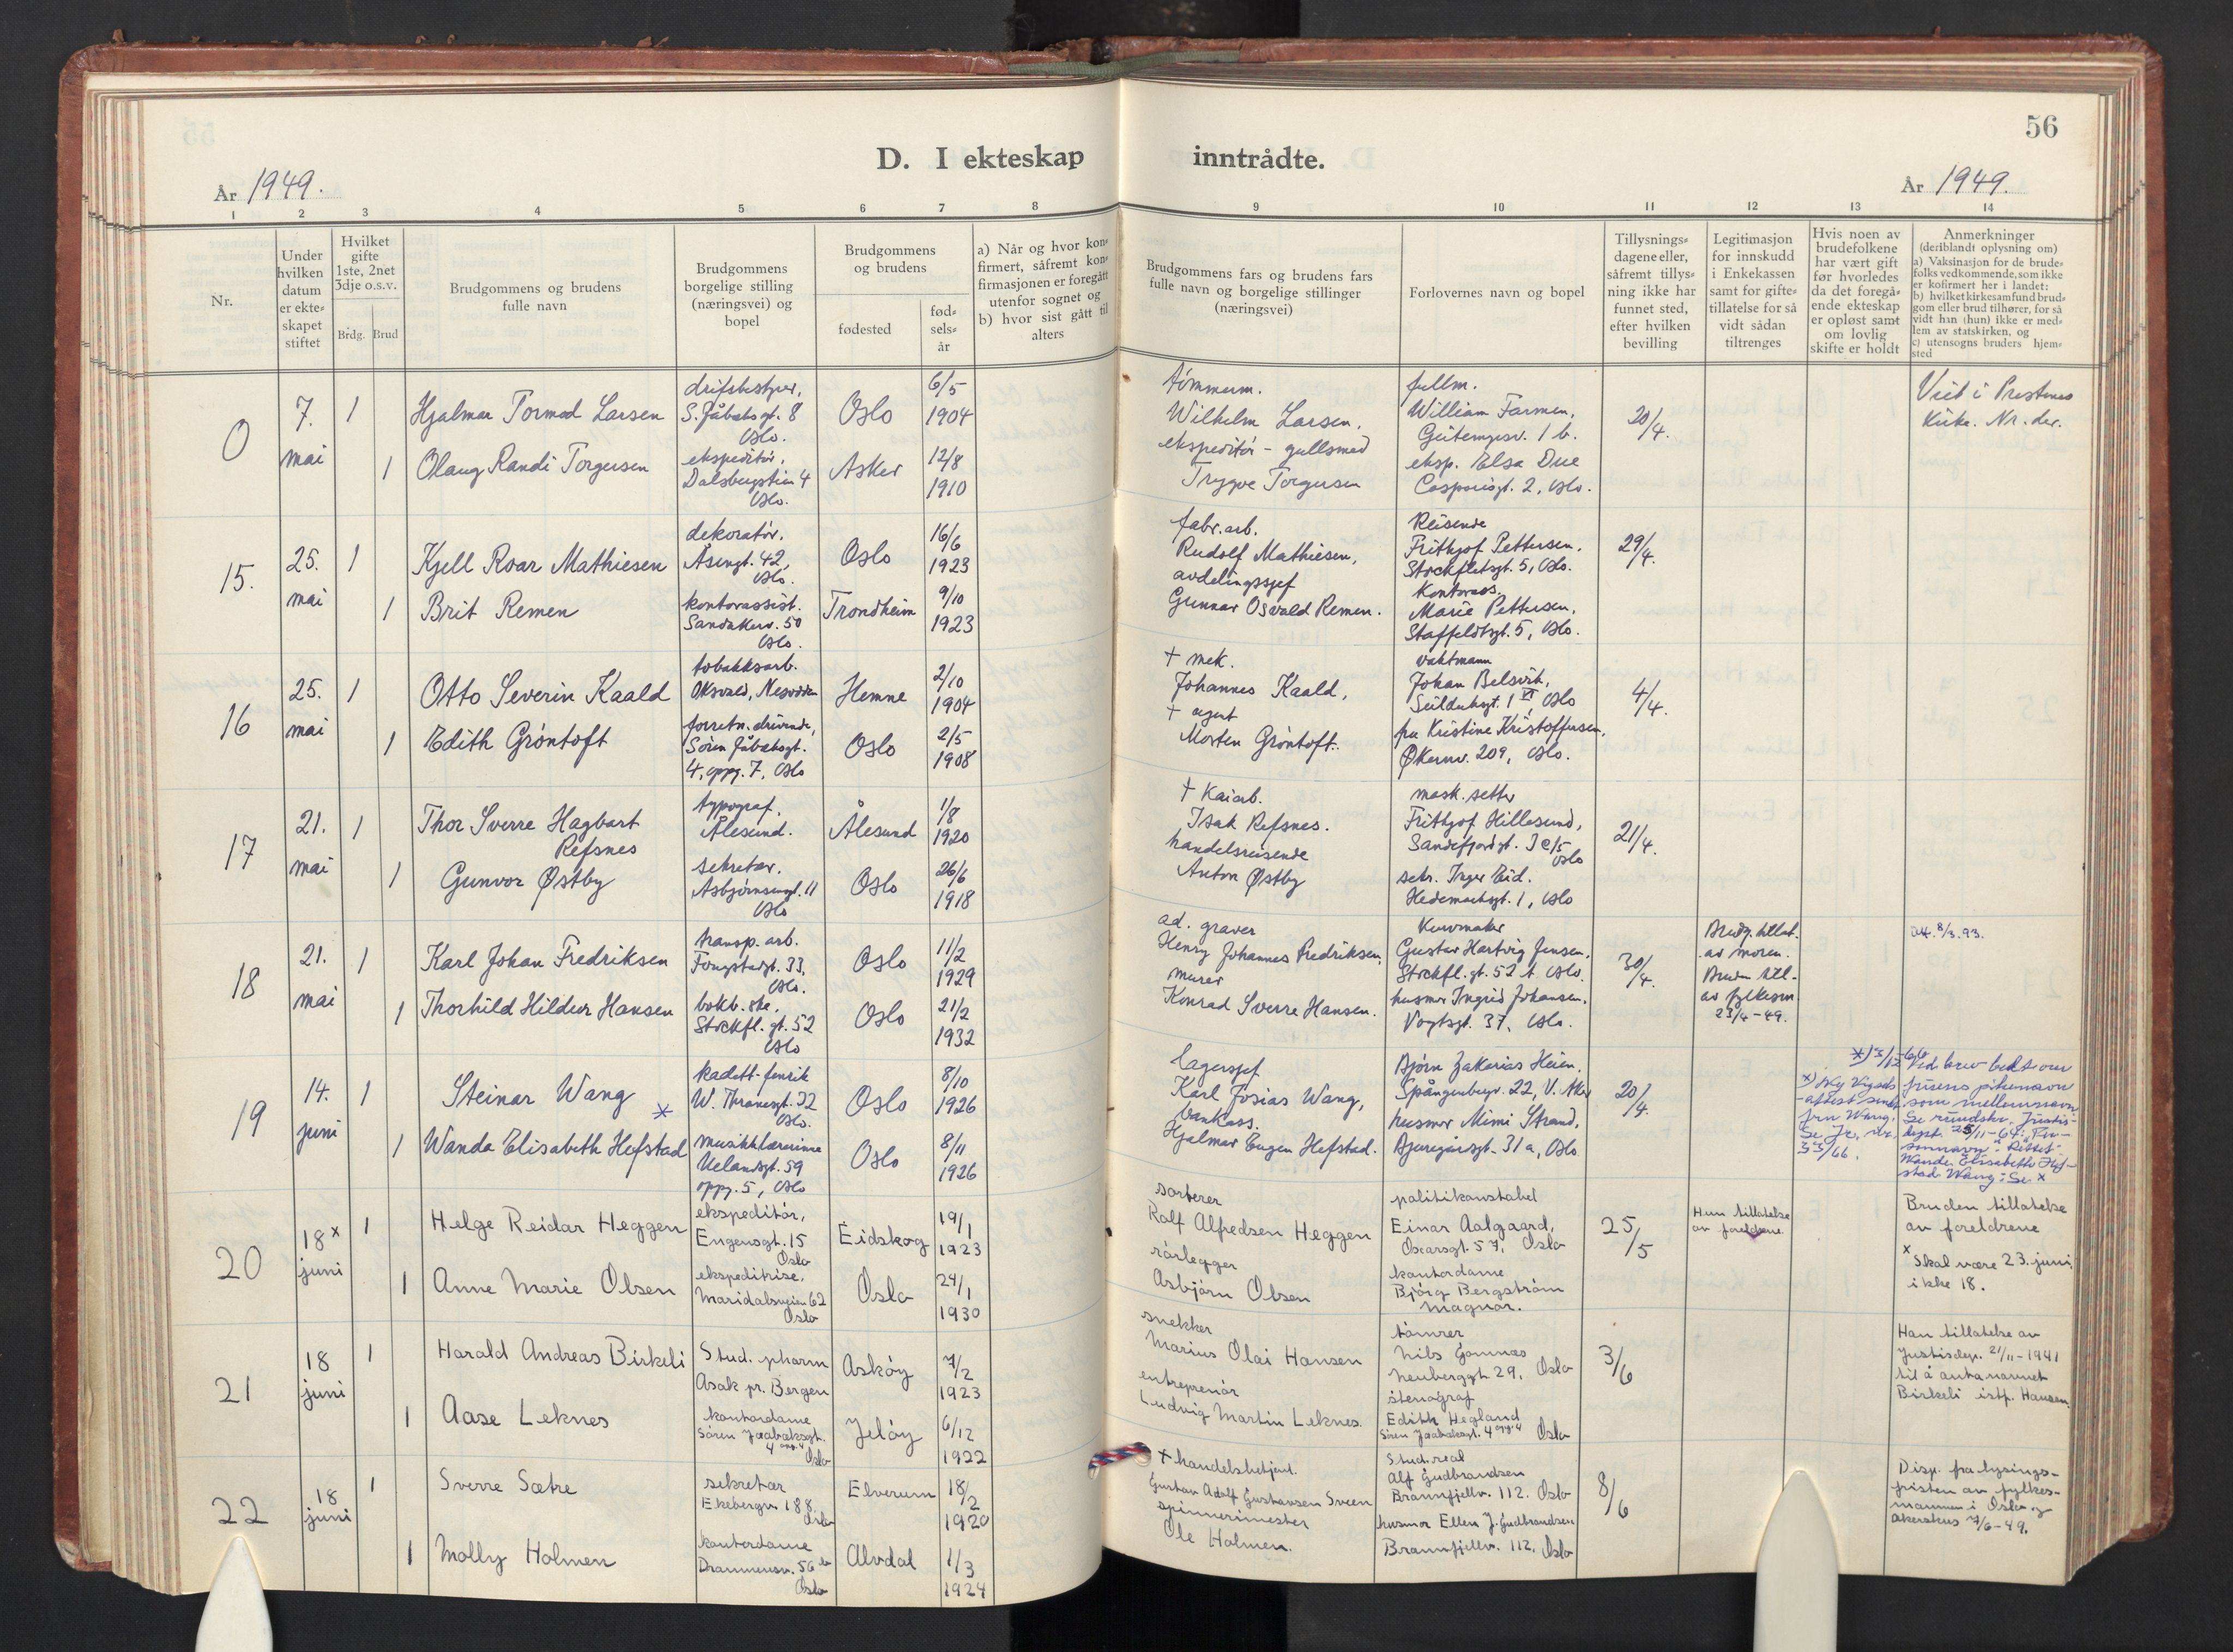 56
D. I ekteskap inntrådte.
År 1949.
År 1949.
1 2 3 4 5 6 7 8 9 10 11 12 13 14
Nr.
Under hvilken datum er ekte= skapet stiftet
Hvilket gifte 1ste, 2net 3dje o.s.v.
Brdg. Brud
Brudgommens og brudens fulle navn
Brudgommens borgelige stilling (næringsvei) og bopel
Brudgommens og brudens
fødested
fød= sels= år
a) Når og hvor kon= firmert, såfremt kon= firmasjonen er foregått utenfor sognet og
b) hvor sist gått til alters
Brudgommens fars og brudens fars fulle navn og borgelige stillinger (næringsvei)
Forlovernes navn og bopel
Tillysnings= dagene eller, såfremt tillys= ning ikke har funnet sted, efter hvilken bevilling
Legitimasjon for innskudd i Enkekassen samt for gifte= tillatelse for så vidt sådan tiltrenges
Hvis noen av brudefolkene har vært gift før hvorledes da det foregå= ende ekteskap er opløst samt om lovlig skifte er holdt
Anmerkninger
(deriblandt oplysning om)
a) Vaksinasjon for de brude= folks vedkommende, som ikke er kofirmert her i landet;
b) hvilket kirkesamfund brud= gom eller brud tilhører, for så vidt han (hun) ikke er med= lem av statskirken, og
c) utensogns bruders hjem= sted
0
7. mai
1 Hjalmar Tormod Larsen
S. Jåbæksgt. 8 Oslo.
Oslo
6/5 1904
1 Olaug Randi Torgersen
ekspeditør,
Dalsbergstien 4 Oslo.
Asker
12/8 1910
tømmerm.
Wilhelm Larsen.
ekspeditør - gullsmed
Trygve Torgersen
fullm.
William Farmen,
Geitemyrsv. 1 b.
eksp. Elsa Due
Casparisgt. 2, Oslo.
20/4.
Viet i Prestenes
Kirke. Nr. der.
15.
25. mai
1 Kjell Roar Mathiesen
dekoratør.
Åsengt. 42, Oslo.
Oslo
16/6 1923
1 Brit Remen
kontorassist.
Sandakerv. 50 Oslo.
Trondheim
9/10 1923
fabr. arb.
Rudolf Mathiesen,
avdelingssjef
Gunnar Osvald Remen.
Reisende
Frithjof Pettersen.
Stockfletsgt. 5, Oslo.
Kontorass.
Marie Pettersen,
Staffeldtsgt. 5, Oslo.
29/4.
16
25. mai
1 Otto Severin Kaald
tobakksarb.
Oksvald, Nesodden
Hemne
2/10 1904
1 Edith Grøntoft
forretn. drivende,
Søren Jåbæksgt.
4, oppg. 7, Oslo
Oslo
2/5 1908
† mek.
Johannes Kaald,
† agent
Morten Grøntoft.
vaktmann
Johan Belsvik,
Seilduksgt. 1 VI, Oslo
fru Kristine Kristoffersen,
Økernv. 209, Oslo.
4/4.
17
21. mai
1 Thor Sverre Hagbart
Refsnes
typograf,
Ålesund.
Ålesund
1/8 1920
1 Gunvor Østby
sekretær.
Asbjørnsensgt. 11
Oslo
Oslo
26/6 1918
† Kaiarb.
Isak Refsnes.
handelsreisende
Anton Østby
mask. setter
Frithjof Hillesund,
Sandefjordgt. 3 c/5 Oslo
sekr. Inger Eid.
Hedemarksgt. 1, Oslo
21/4.
18
21. mai
1 Karl Johan Fredriksen
transp. arb.
Fougstadgt. 33, Oslo.
Oslo
11/2 1929
1 Thorhild Hildur Hansen
bokb. ske,
Stockfl. gt. 52
Oslo
Oslo
21/2 1932
ad. graver
Henry Johannes Fredriksen,
murer
Konrad Sverre Hansen.
Kurvmaker
Gustav Hartvig Jensen.
Stockfl. gt. 52 A Oslo.
husmor Ingrid Johansen.
Vogtsgt. 37, Oslo.
30/4.
Brudg. tillat.
av moren.
Bruden till.
av fylkesm.
23/4-49.
att. 8/3.93.
19
14. juni
1 Steinar Wang *
kadett-fenrik
W. Thranesgt. 32
Oslo.
Oslo
8/10 1926
1 Wanda Elisabeth Hefstad
musikklærerinne
Uelandsgt. 59
oppg. 5, Oslo
Oslo
8/11 1926
lagersjef
Karl Josias Wang,
bankass.
Hjalmar Eugen Hefstad.
Bjørn Zakarias Heien.
Spångbergv. 22, V. Aker
husmor Mimi Strand,
Bjerregårdsgt. 31 a, Oslo
20/4.
x) Ny Vigsels-
attest sendt
fru Wang.
Se Jr. nr.
33/66.
fruens pikenavn
som mellemnavn
Se rundskr. Justis-
dept. 25/11-64:
Wanda Elisabeth Hef-
stad Wang: Se x
20
18x juni
1 Helge Reidar Heggen
ekspeditör,
Engensgt. 15
Oslo
Eidskog
19/1 1923
1 Anne Marie Olsen
ekspeditrise.
Maridalsveien 62
Oslo
Oslo
24/1 1930
sorterer
Ralf Alfredsen Heggen
rörlegger
Asbjörn Olsen
politikonstabel
Einar Aalgaard,
Oscarsgt. 57, Oslo
kontordame
Björg Bergström
Magnor.
25/5
Hun tillatelse
av foreldrene.
Bruden tillatelse
av foreldrene
x Skal være 23. juni,
ikke 18.
21
18 juni
1 Harald Andreas Birkeli
Stud. pharm
Asak pr. Bergen
Asköy
7/2 1923
1 Aase Leknes
kontordame
Sören Jaabæksgt.
4 opg. 4 Oslo
Jelöy
6/12 1922
snekker
Marius Olai Hansen
entreprenör
Ludvig Martin Leknes.
tömrer
Nils Gomnæs
Neuberggt 29, Oslo
stenograf
Edith Hegland
Sören Jaabæksgt. 4 opg. 4 Oslo
3/6
Han tillatelse av
Justisdep. 21/11-1941
til å anta navnet
Birkeli istf. Hansen.
22
18 juni
1 Sverre Sætre
sekretær
Ekebergv. 188.
Oslo
Elverum
18/2 1920
1 Molly Holmen
kontordame
Drammensv. 56 b
Oslo
Alvdal
1/3 1924
+ handelsbetjent.
Gustav Adolf Gustavsen Sveen
spinnerimester
Ole Holmen.
Stud. real
Alf Gudbrandsen
Brannfjellv. 112. Oslo
husmor Ellen J. Gudbrandsen
Brannfjellv. 112, Oslo
8/6
Disp. fra lysings-
fristen av fylkes-
mannen i Oslo og
Akershus 7/6-49.